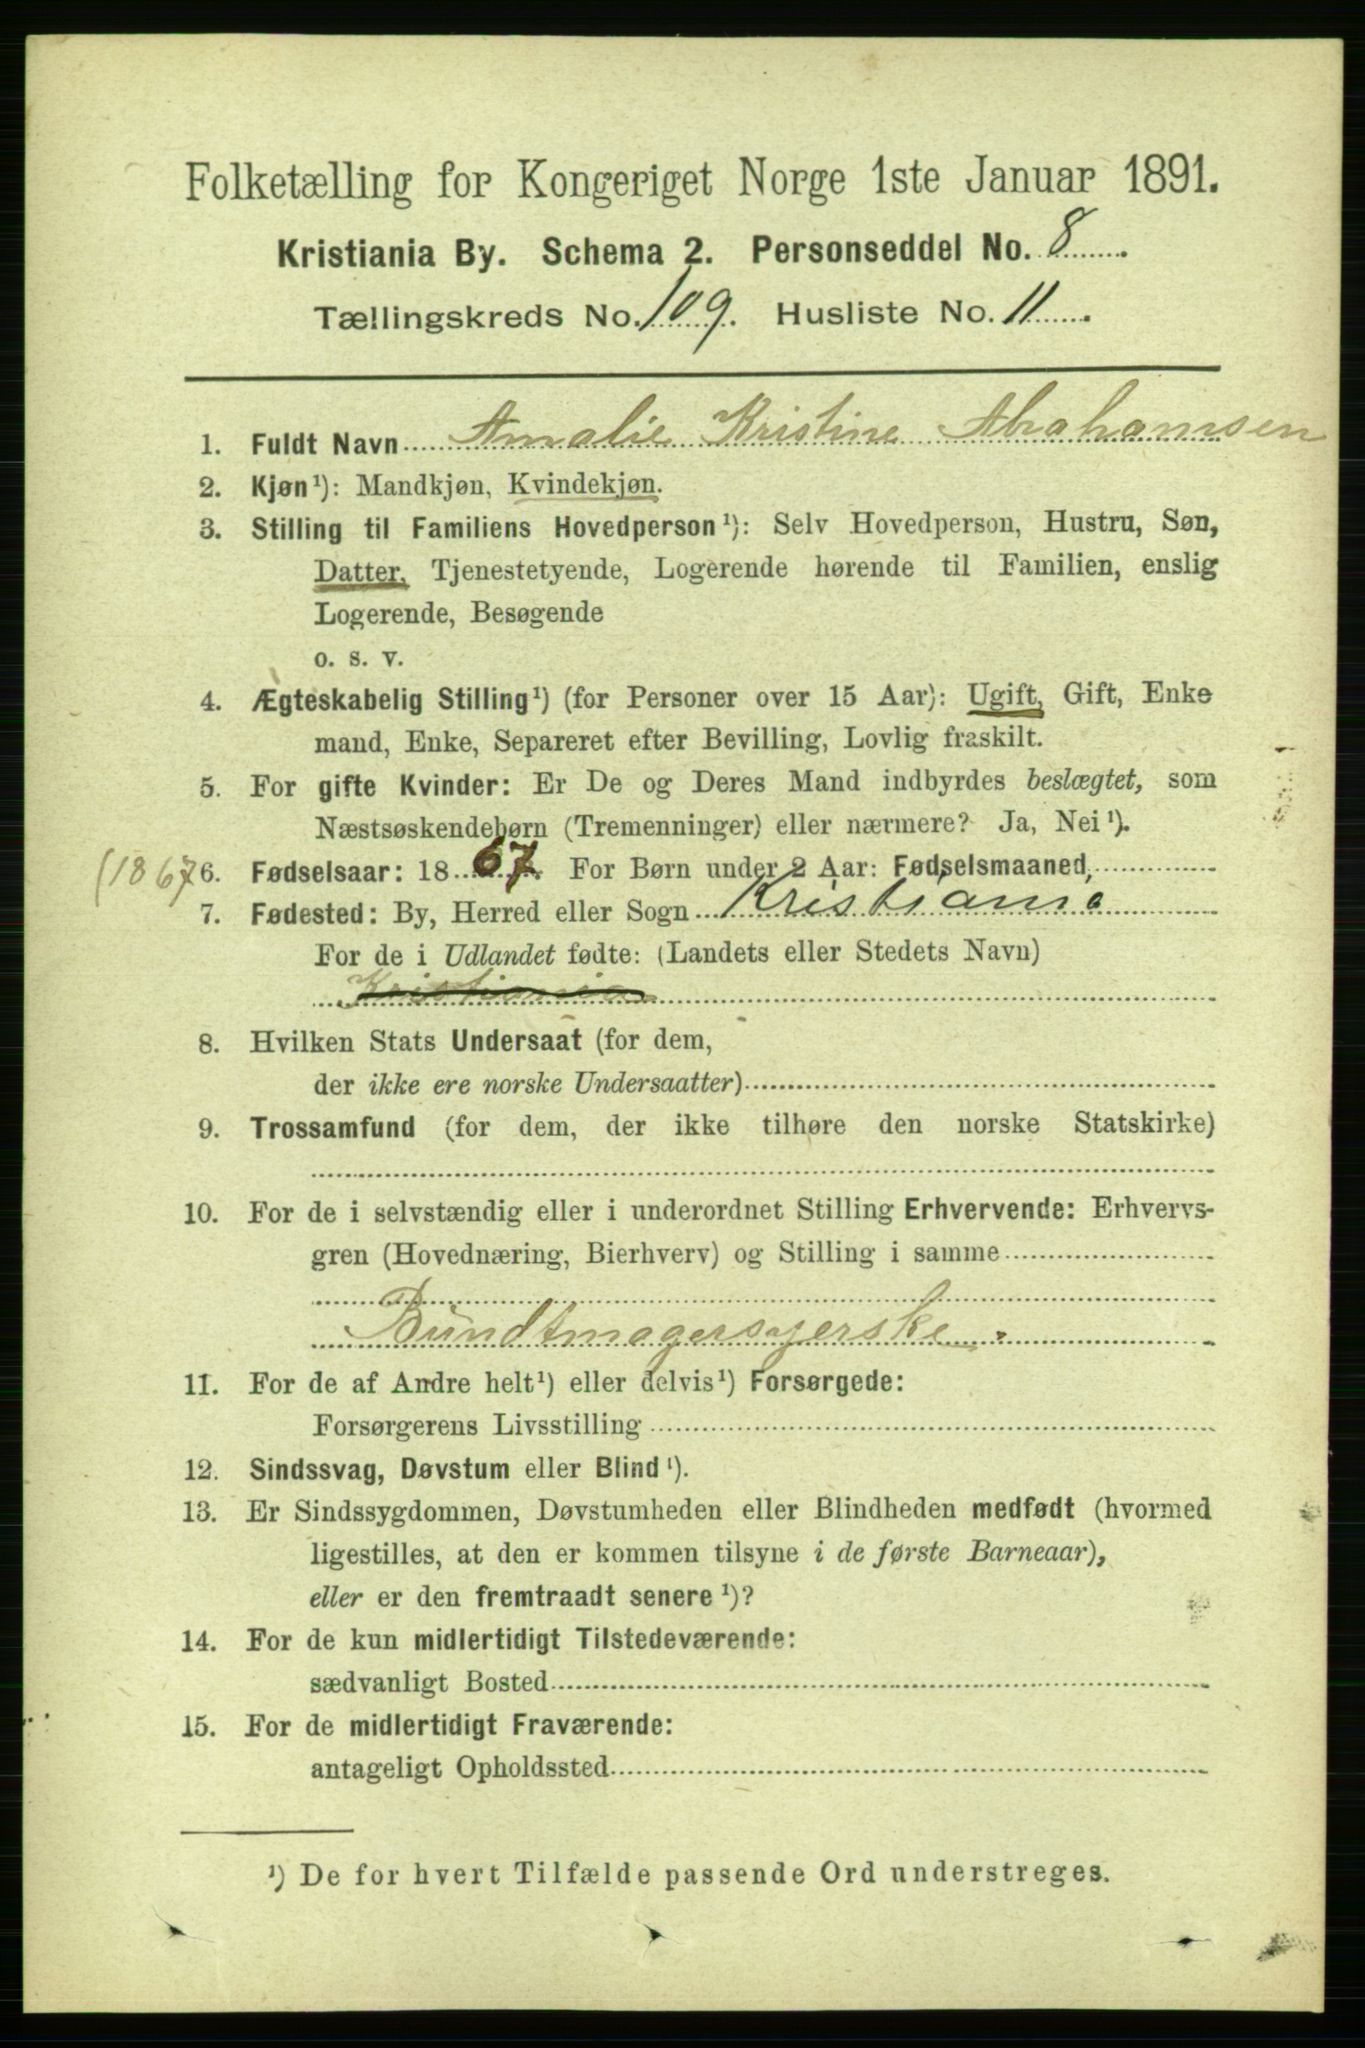 Folketælling for Kongeriget Norge 1ste Januar 1891.
Kristiania By. Schema 2. Personseddel No. 8
Tællingskreds No. 109. Husliste No. 11
1. Fuldt Navn Amalie Kristine Abrahamsen
2. Kjøn¹): Mandkjøn, Kvindekjøn.
3. Stilling til Familiens Hovedperson¹): Selv Hovedperson, Hustru, Søn,
Datter, Tjenestetyende, Logerende hørende til Familien, enslig
Logerende, Besøgende
o. s. v.
4. Ægteskabelig Stilling¹) (for Personer over 15 Aar): Ugift, Gift, Enke
mand, Enke, Separeret efter Bevilling, Lovlig fraskilt.
5. For gifte Kvinder: Er De og Deres Mand indbyrdes beslægtet, som
Næstsøskendebørn (Tremenninger) eller nærmere? Ja, Nei¹).
(1867 6. Fødselsaar: 1867. For Børn under 2 Aar: Fødselsmaaned,
7. Fødested: By, Herred eller Sogn Kristiania
For de i Udlandet fødte: (Landets eller Stedets Navn)
Kristiania
8. Hvilken Stats Undersaat (for dem,
der ikke ere norske Undersaatter)
9. Trossamfund (for dem, der ikke tilhøre den norske Statskirke)
10. For de i selvstændig eller i underordnet Stilling Erhvervende: Erhvervs-
gren (Hovednæring, Bierhverv) og Stilling i samme
Bundtmagersyerske.
11. For de af Andre helt¹) eller delvis¹) Forsørgede:
Forsørgerens Livsstilling
12. Sindssvag, Døvstum eller Blind¹).
13. Er Sindssygdommen, Døvstumheden eller Blindheden medfødt (hvormed
ligestilles, at den er kommen tilsyne i de første Barneaar),
eller er den fremtraadt senere¹)?
14. For de kun midlertidigt Tilstedeværende:
sædvanligt Bosted
15. For de midlertidigt Fraværende:
antageligt Opholdssted
¹) De for hvert Tilfælde passende Ord understreges.